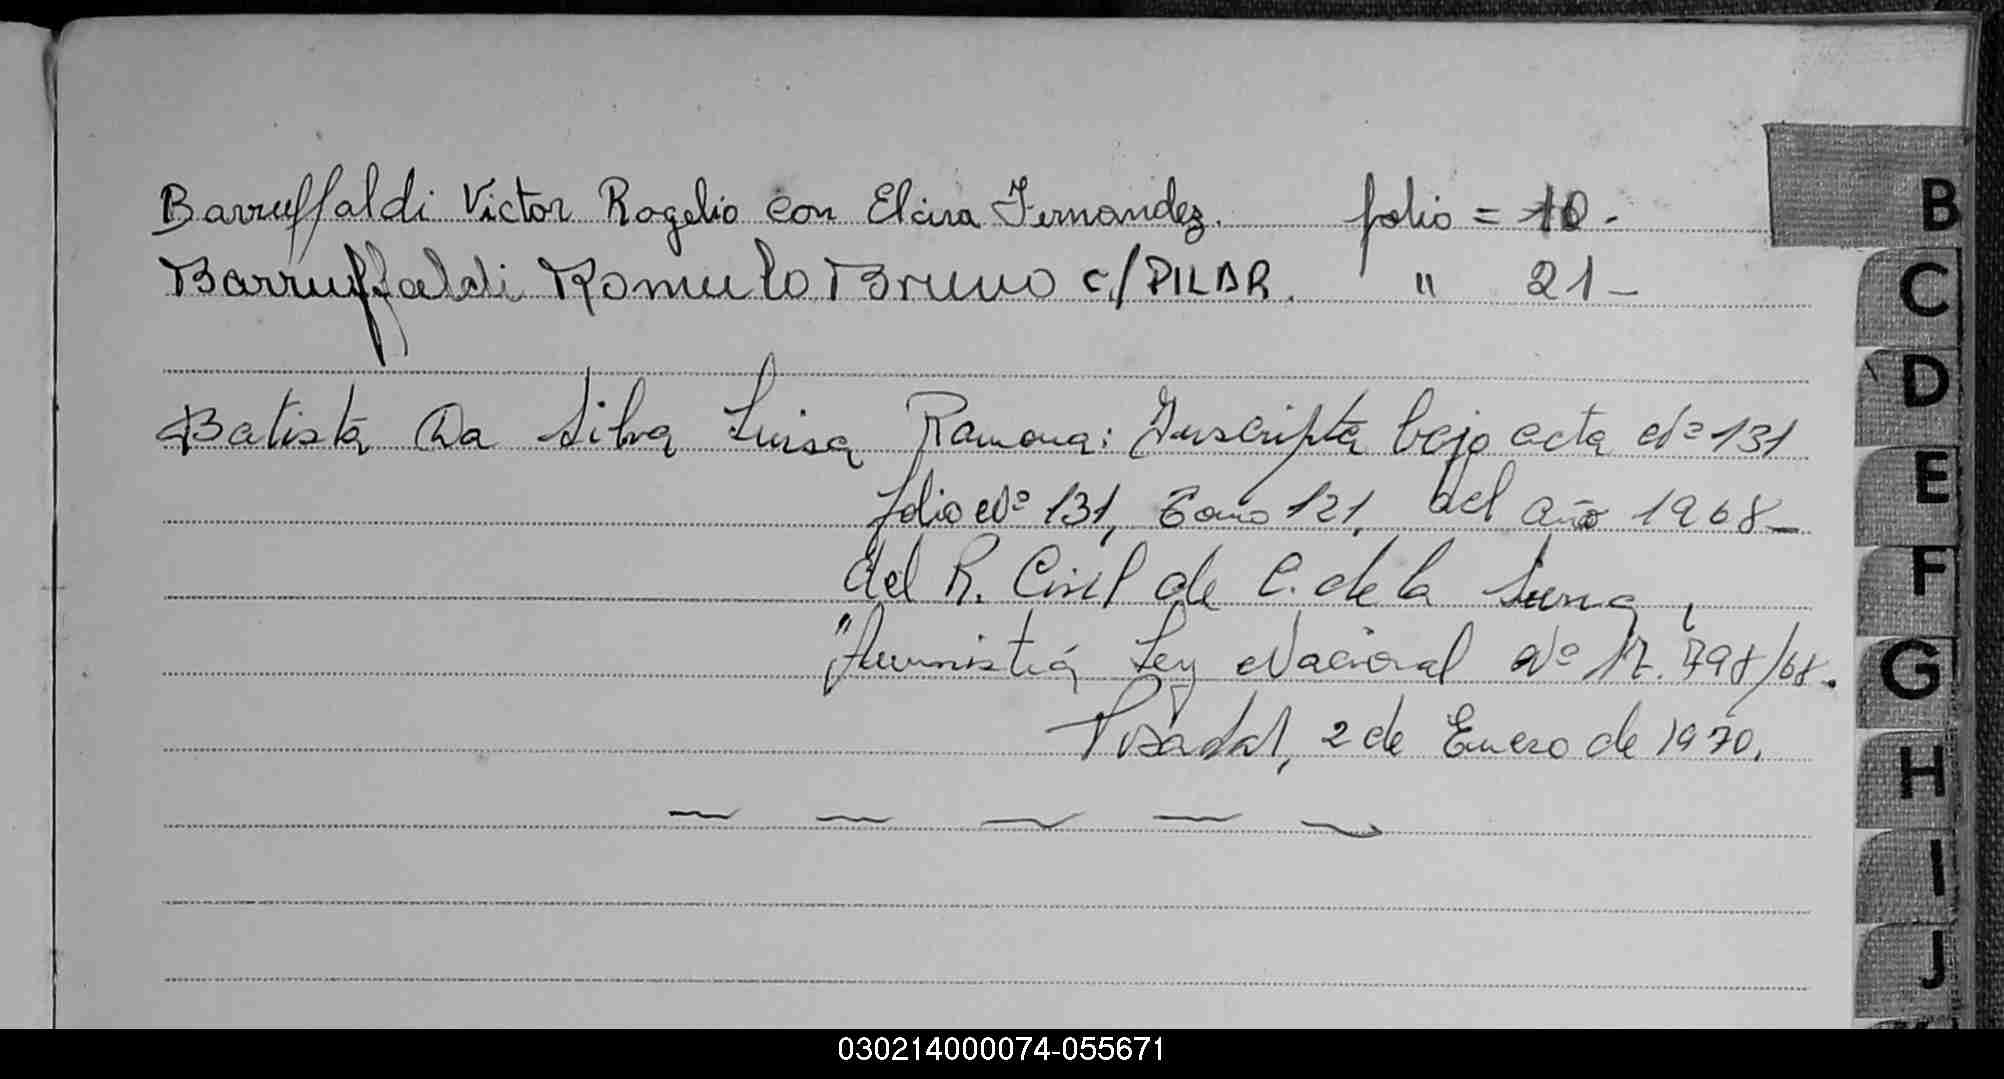 Barruffaldi Victor Rogelio con Elcira Fernandez. folio = 10.-
Barruffaldi Romulo Bruno c/PILAR. " 21-
Batista Da Silva Luisa Ramona: Inscripta bajo acta Nº 131
folio Nº 131, Tomo 121, del año 1968-
del R. Civil de C. de la Sierra,
"Amnistía Ley Nacional Nº 17.798/68.
Posadas, 2 de Enero de 1970.
B
C
D
E
F
G
H
I
J
030214000074-055671